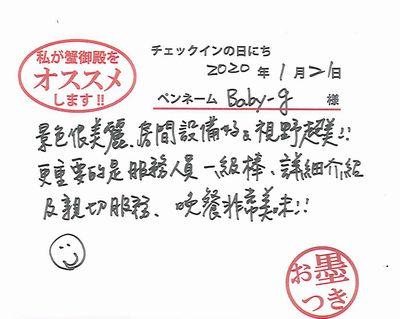 私が蟹御殿を
オススメ
します!!
チェックインの日にち
2020 年 1 月 21日
ペンネーム Baby-g 様
景色很美麗、房間設備好&視野超美!!
更重要的是服務人員一級棒、詳細介紹
及親切服務、晚餐非常美味!!
お墨
つき